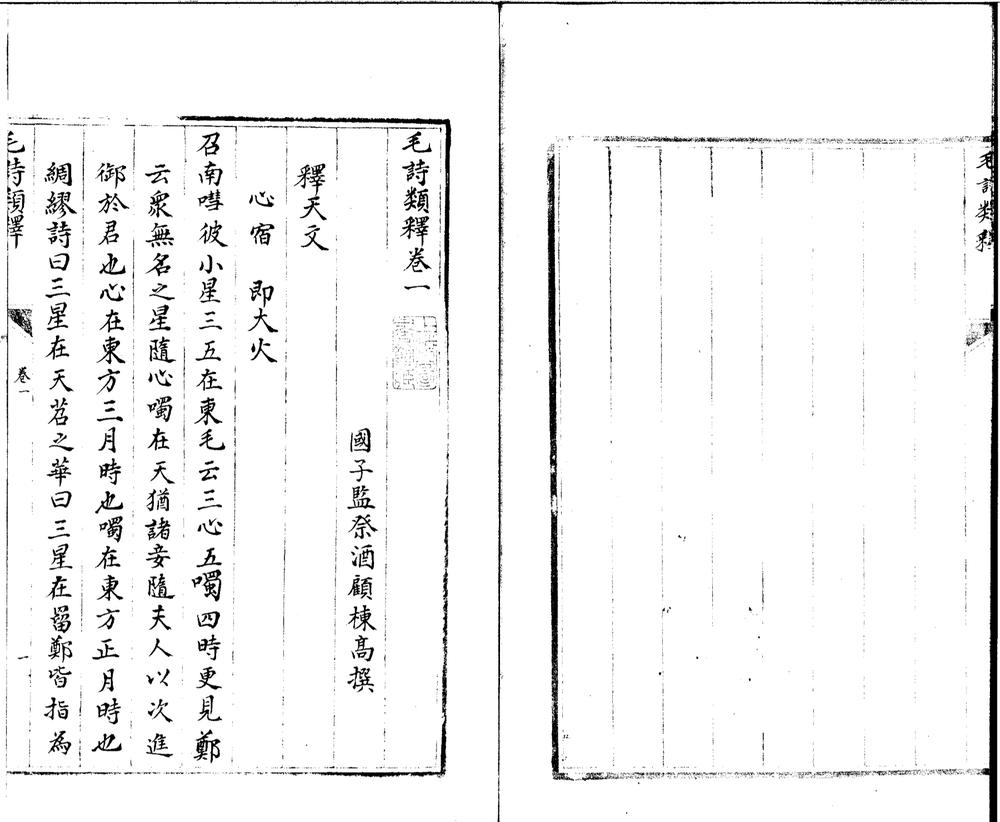 毛詩類釋
毛詩類釋卷一
國子監祭酒顧棟高撰
釋天文
心宿　即大火
召南嘒彼小星三五在東毛云三心五噣四時更見鄭
云衆無名之星隨心噣在天猶諸妾隨夫人以次進
御於君也心在東方三月時也噣在東方正月時也
綢繆詩曰三星在天苕之華曰三星在罶鄭皆指為
毛詩類釋
卷一
一